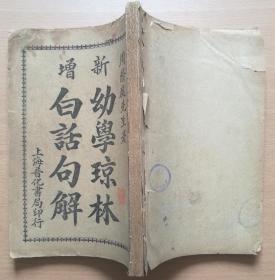 新增
幼學琼林
白話句解
上海普化書局印行